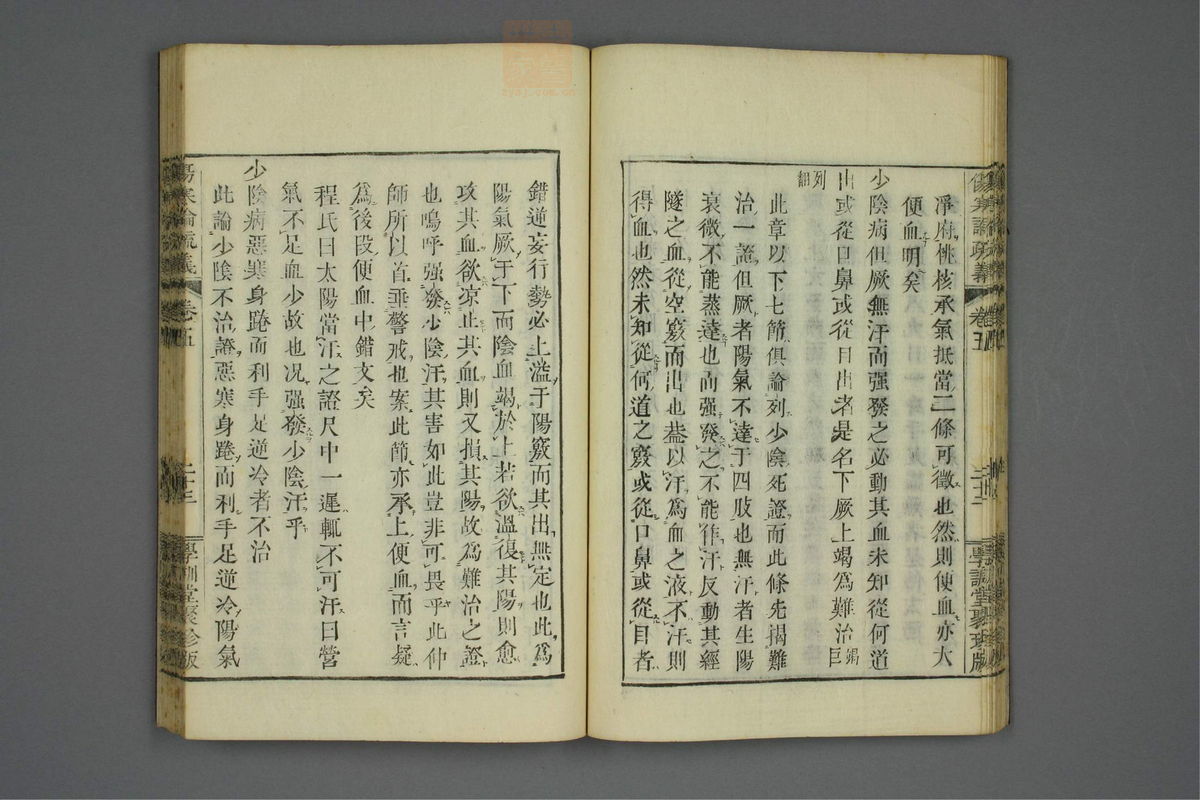 傷寒論疏義 卷五 學訓堂聚珍版
淨府桃核承氣抵當二條可徵也然則便血亦大
便血明矣
少陰病但厥無汗而强發之必動其血未知從何道
出或從口鼻或從目出者是名下厥上竭爲難治竭巨
列
翻
此章以下七節俱論列少陰死證而此條先揭難
治一證但厥者陽氣不達于四肢也無汗者生陽
衰微不能蒸達也而强發之不能作汗反動其經
隧之血從空竅而出也葢以汗爲血之液不汗則
得血也然未知從何道之竅或從口鼻或從目者
錯逆妄行勢必上溢于陽竅而其出無定也此爲
陽氣厥于下而陰血竭於上若欲溫復其陽則愈
攻其血欲凉止其血則又損其陽故爲難治之證
也嗚呼强發少陰汗其害如此豈非可畏乎此仲
師所以首垂警戒也案此節亦承上便血而言疑
爲後段便血中錯文矣
程氏曰太陽當汗之證尺中一遲輒不可汗曰營
氣不足血少故也况强發少陰汗乎
少陰病惡寒身踡而利手足逆冷者不治
此論少陰不治證惡寒身踡而利手足逆冷陽氣
傷寒論疏義 卷五 二十三 學訓堂聚珍版